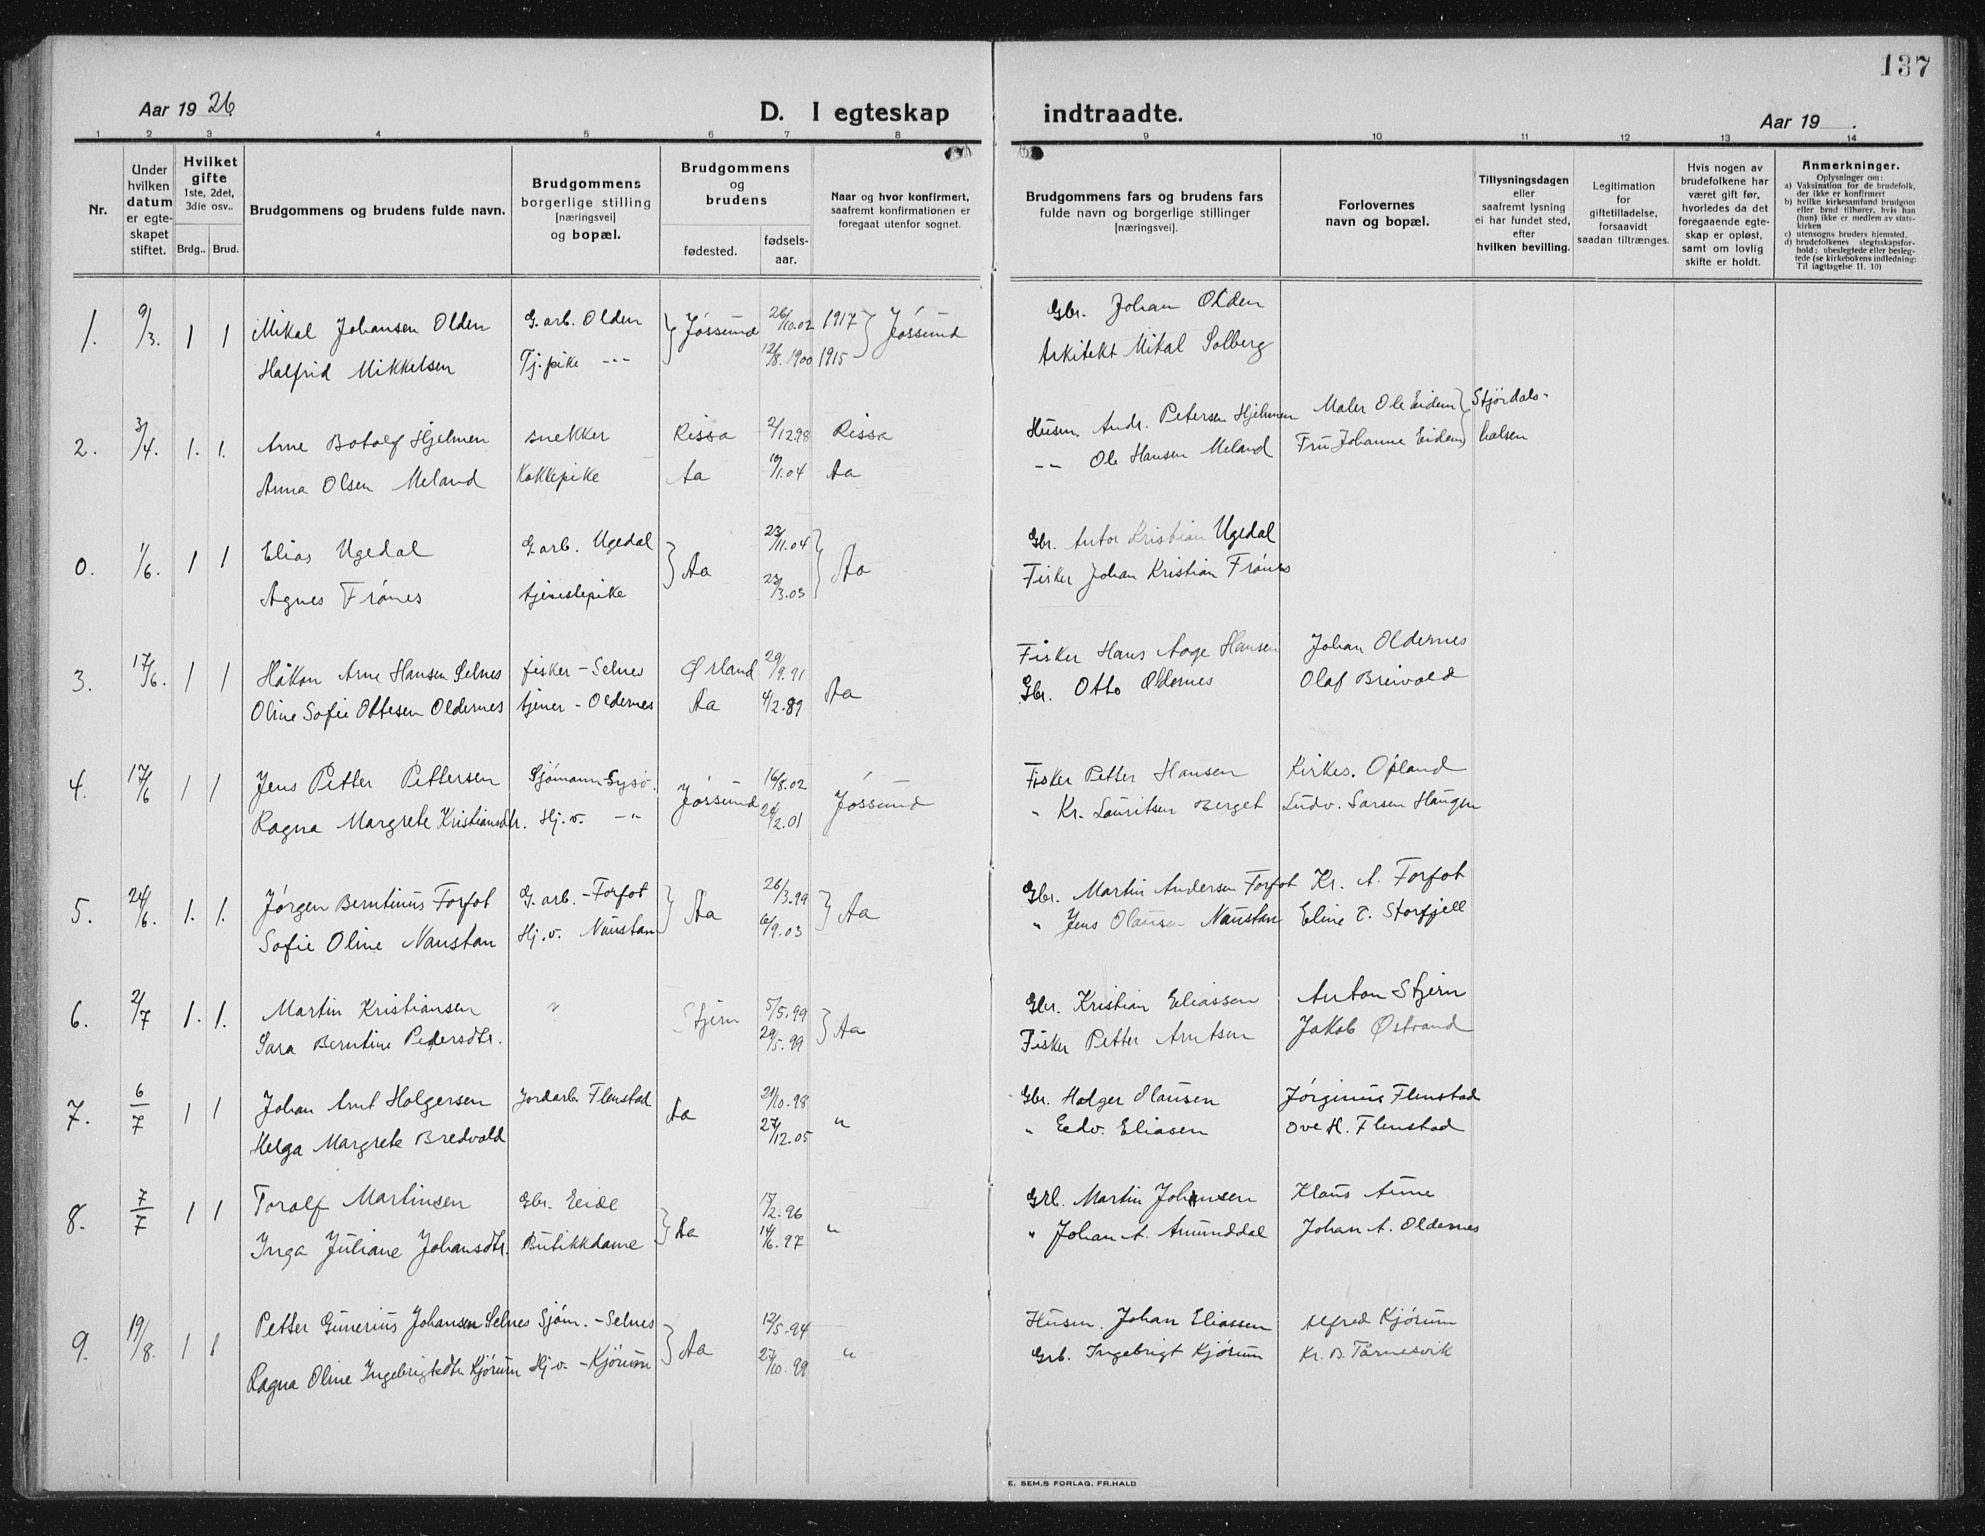 137
Aar 1926
D. I egteskap indtraadte.
Aar 19 .
1 2 3 4 5 6 7 8 9 10 11 12 13 14
Nr.
Under hvilken datum er egte- skapet stiftet.
Hvilket gifte 1ste, 2det, 3die osv..
Brdg.. Brud.
Brudgommens og brudens fulde navn.
Brudgommens borgerlige stilling [næringsvei] og bopæl.
Brudgommens og brudens
fødested.
fødsels- aar.
Naar og hvor konfirmert, saafremt konfirmationen er foregaat utenfor sognet.
Brudgommens fars og brudens fars fulde navn og borgerlige stillinger [næringsvei].
Forlovernes navn og bopæl.
Tillysningsdagen eller saafremt lysning ei har fundet sted, efter hvilken bevilling.
Legitimation for giftetilladelse, forsaavidt saadan tiltrænges.
Hvis nogen av brudefolkene har været gift før, hvorledes da det foregaaende egte- skap er opløst, samt om lovlig skifte er holdt.
Anmerkninger.
Oplysninger om:
a) Vaksination for de brudefolk, der ikke er konfirmert
b) hvilke kirkesamfund brudgom eller brud tilhører, hvis han (hun) ikke er medlem av stats- kirken
c) utensogns bruders hjemsted.
d) brudefolkenes slegtsskapsfor- hold: ubeslegtede eller besleg- tede (se kirkebokens indledning: Til iagttagelse II. 10)
1. 9/3. 1 1 Mikal Johansen Olden G. arb. Olden } Jössund 26/10.02 1917 } Jössund Gbr. Johan Olden
Halfrid Mikkelsen Tj. pike -"- 12/8.1900 1915 Arkitekt Mikal Solberg
2. 3/4. 1. 1. Arne Botolf Hjelmen snekker Rissa 2/12 98 Rissa Husm. Andr. Petersen Hjelmen Maler Ole Eidem } Stjördals-
Anna Olsen Meland Kokkepike Aa 10/1.04 Aa -"- Ole Hansen Meland Fru Johanne Eidem halsen
0. 1/6. 1 1 Elias Ugedal G. arb. Ugedal } Aa 23/11.04 } Aa Gbr. Anton Kristian Ugedal
Agnes Frönes tjenestepike 23/3.03 Fisker Johan Kristian Frönes
3. 17/6. 1 1 Håkon Arne Hansen Selnes fisker - Selnes Ørland 29/9.91 Aa Fisker Hans Aage Hansen Johan Oldernes
Oline Sofie Ottesen Oldernes tjener - Oldernes Aa 4/2.89 Gbr. Otto Oldernes Olaf Breivold
4. 17/6 1 1 Jens Petter Pettersen Sjömann Sysö. Jössund 16/8.02 Jössund Fisker Petter Hansen Kirkes. Opland
Ragna Margrete Kristiansdtr. Hj. v. -"- 20/2.01 " Kr. Lauritsen Berget Ludv. Larsen Haugen
5. 24/6. 1. 1. Jörgen Berntinus Forfot G. arb. - Forfot } Aa 26/3.99 } Aa Gbr. Martin Andersen Forfot Kr. A. Forfot
Sofie Oline Naustan Hj. v. Naustan 6/9.03 " Jens Olausen Naustan Eline T. Storfjell
6. 2/7 1. 1. Martin Kristiansen " Stjern 5/5.99 } Aa Gbr. Kristian Eliassen Anton Stjern
Sara Berntine Pedersdtr. 29/5.99 Fisker Petter Arntsen Jakob Østrand
7. 6/7 1 1 Johan Arnt Holgersen Jordarb. Flenstad Aa 21/10.98 " Gbr. Holger Olausen Jörginus Flenstad
Helga Margrete Bredvold 27/12.05 " Edv. Eliasen Ove H. Flenstad
8. 7/7 1 1 Toralf Martinsen Gbr. Eide } Aa 17/2.96 " Grl. Martin Johansen Klaus Aune
Inga Juliane Johansdtr. Butikkdame 14/6.97 " Johan A. Amunddal Johan A. Oldernes
9. 19/8. 1 1 Petter Gunerius Johansen Selnes Sjöm. - Selnes } Aa 12/5.94 " Husm. Johan Eliassen Alfred Kjörum
Ragna Oline Ingebrigtsdtr Kjörum Hj. v. - Kjörum 27/10.99 Grb. Ingebrigt Kjörum Kr. B. Tårnesvik
E. SEM.S FORLAG, FR.HALD